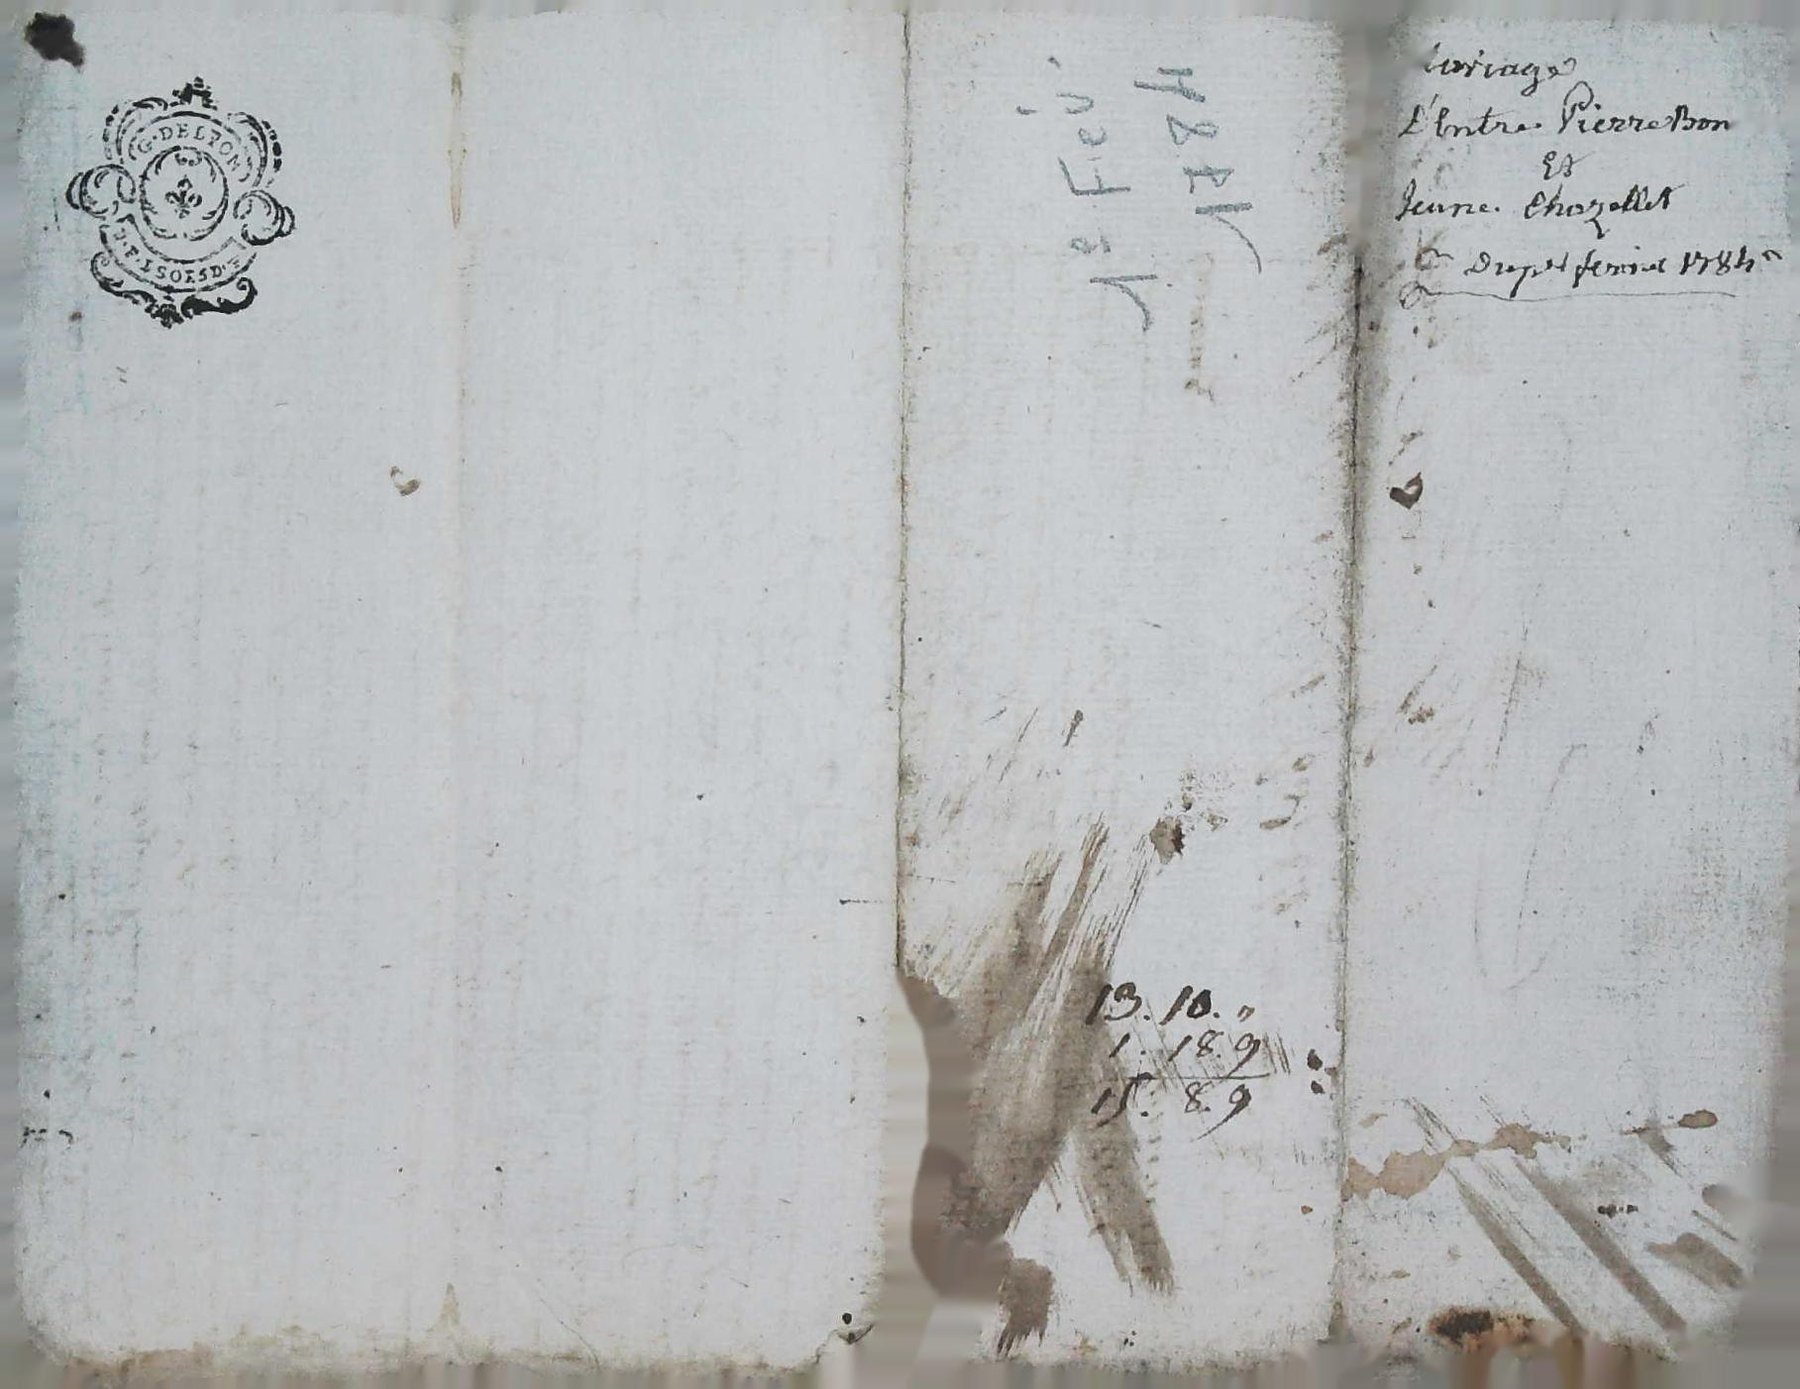 G. DE LYON
2. F. 5 SOLS D.
1e Fev
1784
mariage
D'Entre Pierre Bon
Et
Jeune Chazellet
Du 1er fevrier 1784
13. 10. "
1. 18. 9
15. 8. 9